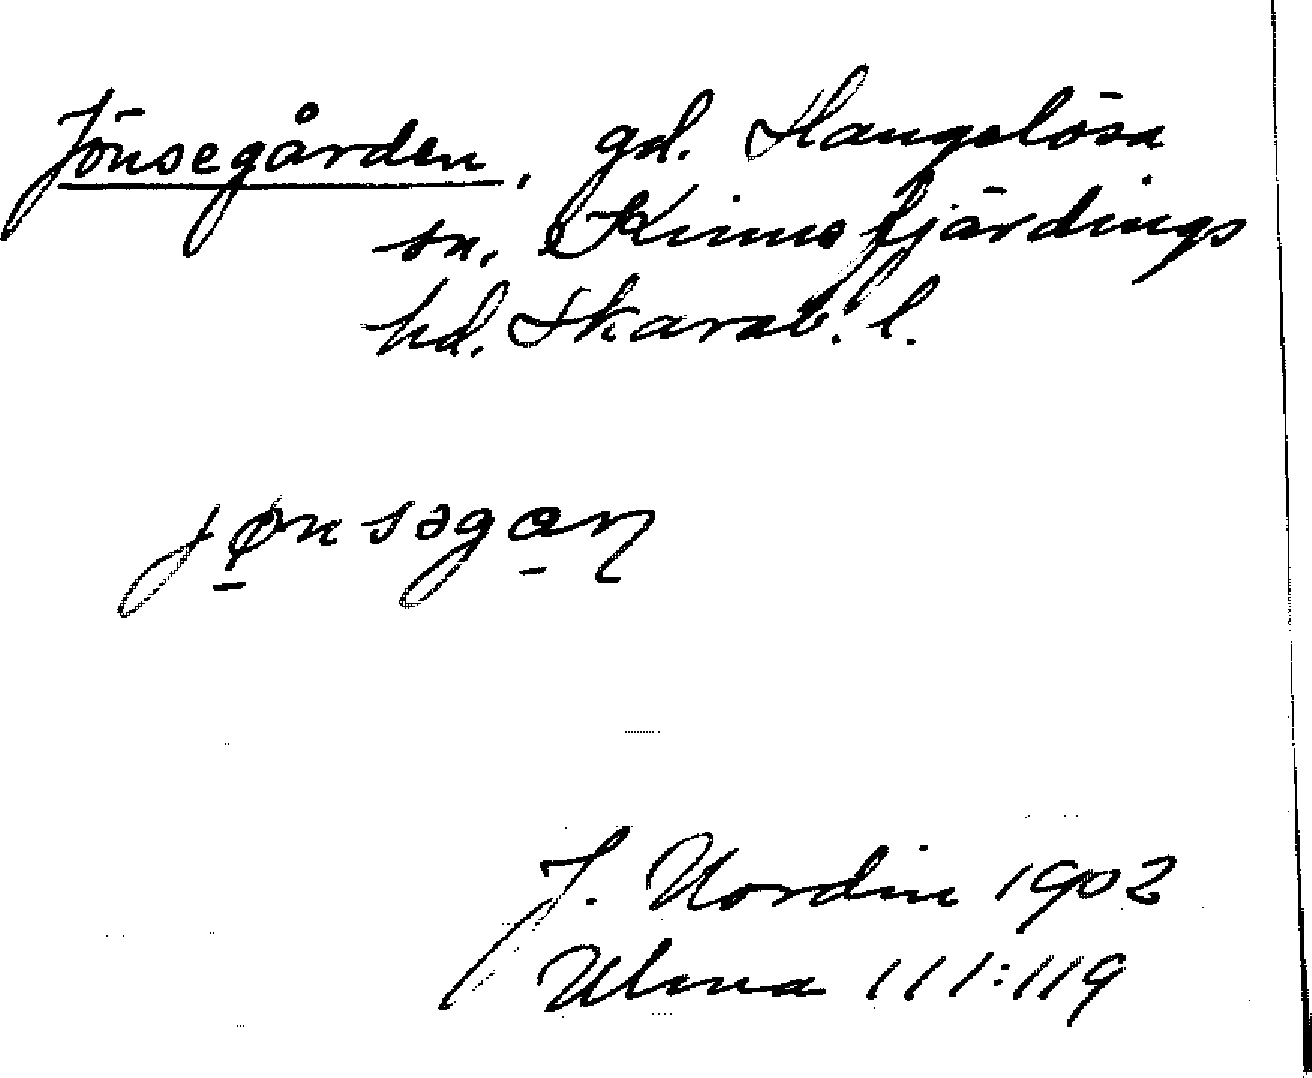 Jönsegården, gd. Hangelösa
sn. Kinnefjärdings
hd. Skarab. l.
jønsəgaɳ
J. Nordin 1902
Ulma 111:119